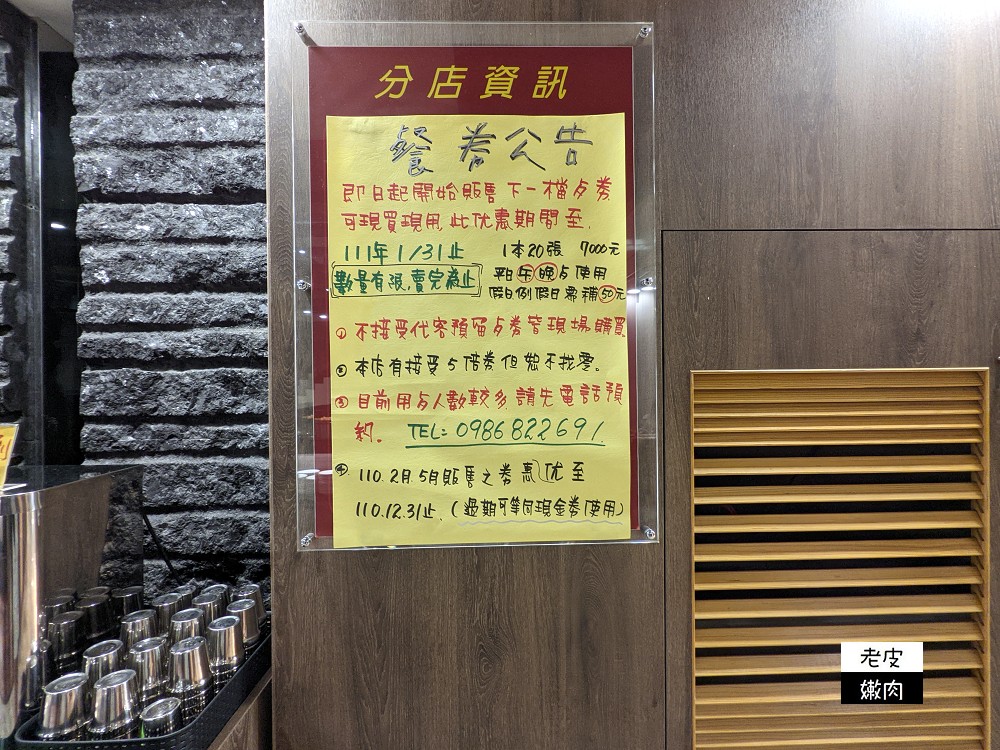 分店資訊
餐券公告
即日起開始販售下一檔歺券
可現買現用,此优惠期間至,
111年1/31止 1本20張 7000元
數量有限,賣完為止
平日午晚歺使用
假日例假日需補50元
① 不接受代客預留歺券需現場購買
② 本店有接受5倍券但恕不找零。
③ 目前用歺人數較多,請先電話預
約. TEL: 0986822691
④ 110.2月.5月販售之券惠优至
110.12.31止.(過期可等付現金券使用)
老皮
嫩肉